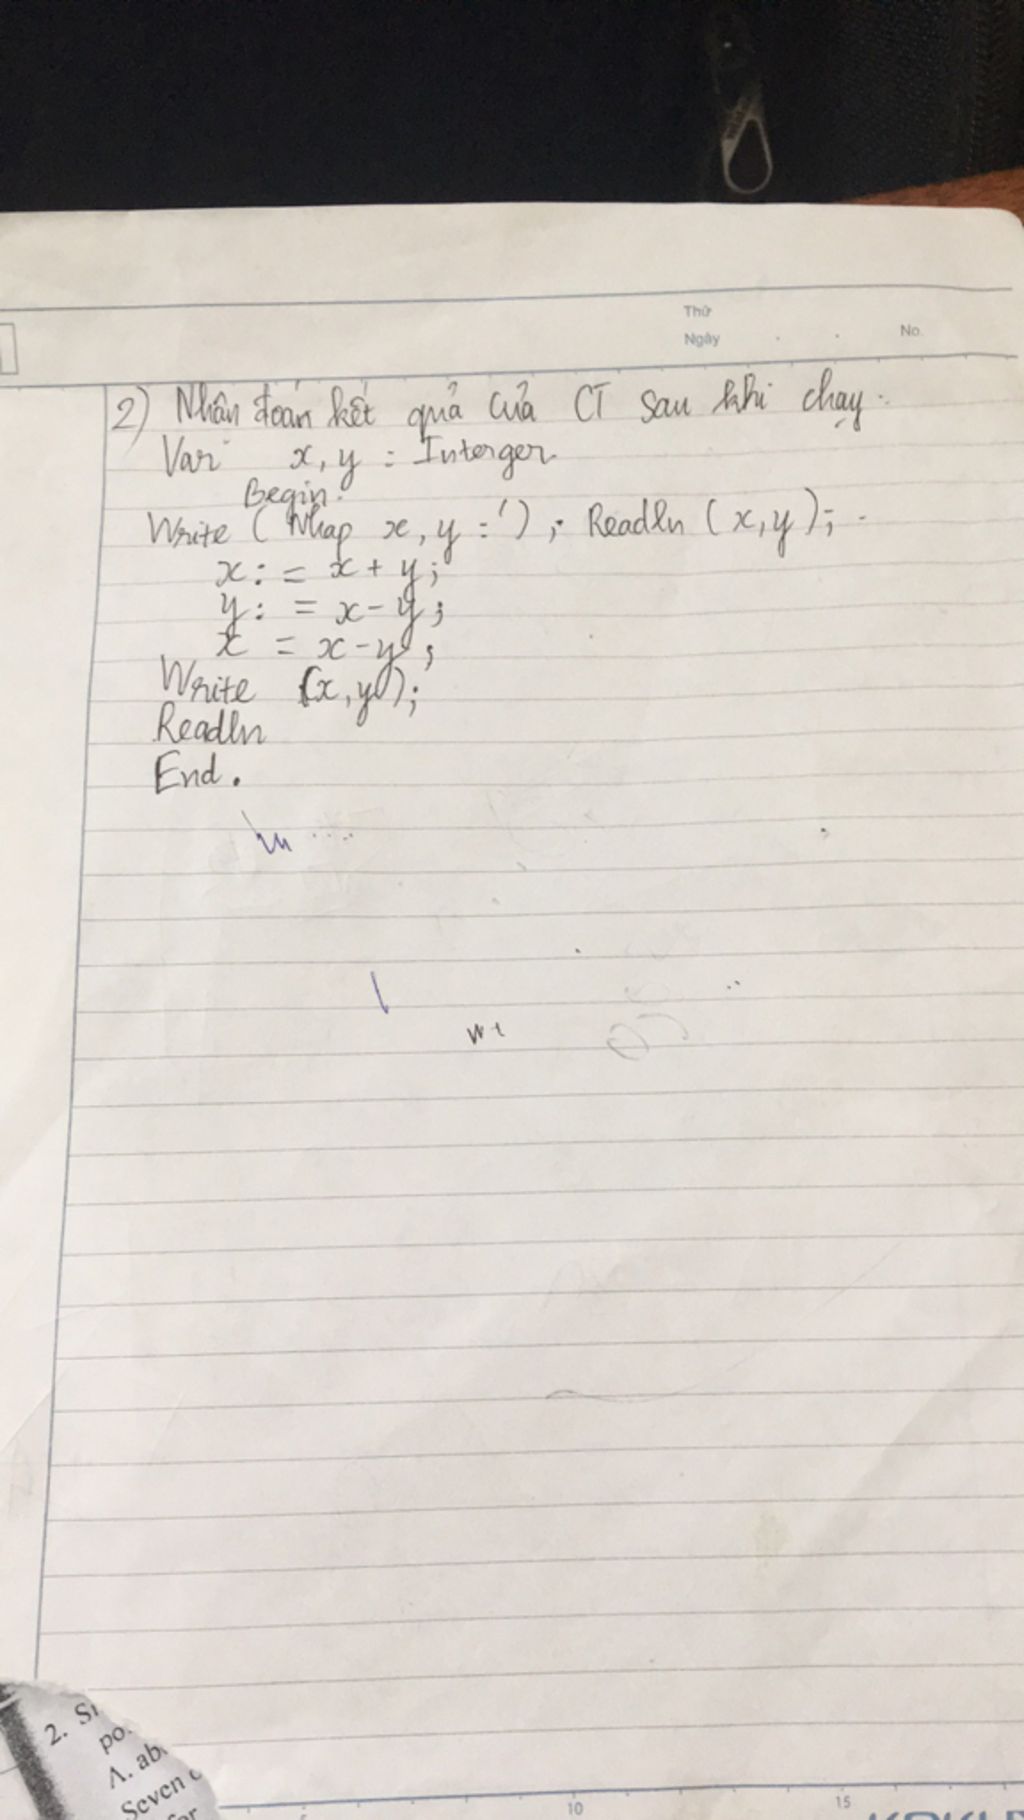 Thứ
Ngày No.
2) Nhân đoán kết quả của CT sau khi chạy.
Var x, y : Interger
Begin.
Write ( Nhap x, y : ' ) ; Readln ( x, y );
x : = x + y ;
y : = x - y ;
x = x - y ;
Write (x, y);
Readln
End .
2. Si
po.
A. ab
Seven
for
10 15